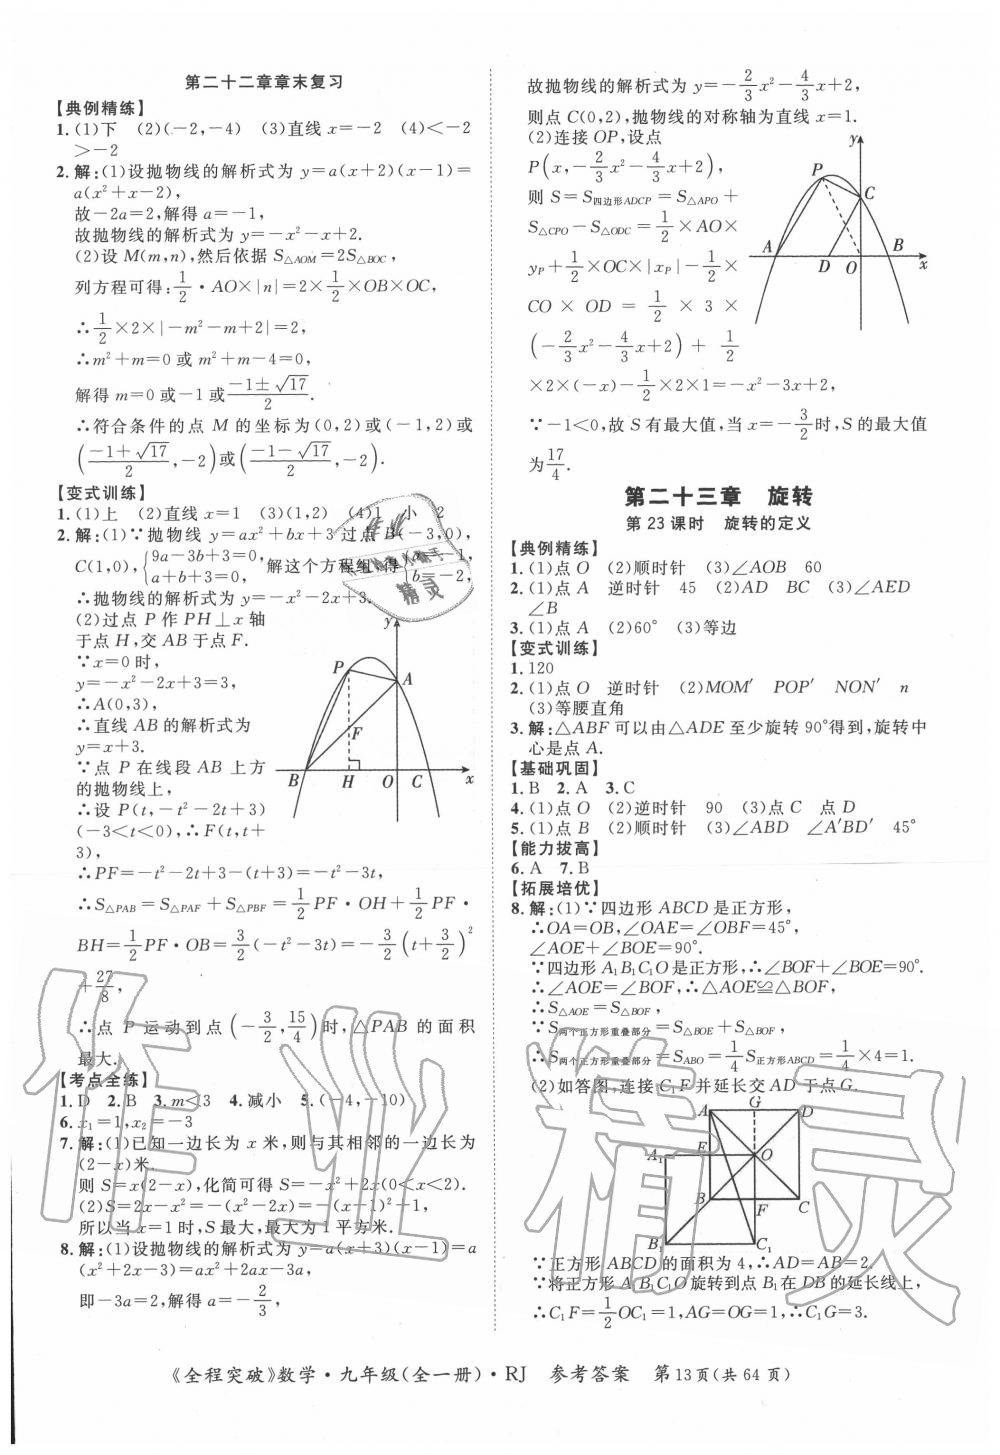 第二十二章章末复习
【典例精练】
1. (1)下 (2)(-2,-4) (3)直线 x=-2 (4)<-2
>-2
2. 解:(1)设抛物线的解析式为 y=a(x+2)(x-1)=
a(x²+x-2),
故-2a=2,解得 a=-1,
故抛物线的解析式为 y=-x²-x+2.
(2)设 M(m,n),然后依据 S△AOM=2S△BOC,
列方程可得:1/2·AO×|n|=2×1/2×OB×OC,
∴1/2×2×|-m²-m+2|=2,
∴m²+m=0 或 m²+m-4=0,
解得 m=0 或-1 或(-1±√17)/2.
∴符合条件的点 M 的坐标为(0,2)或(-1,2)或
((-1+√17)/2,-2)或((-1-√17)/2,-2).
【变式训练】
1. (1)上 (2)直线 x=1 (3)(1,2) (4)1 小 2
2. 解:(1)∵抛物线 y=ax²+bx+3 过点 B(-3,0),
C(1,0),{9a-3b+3=0, a+b+3=0, 解这个方程组,得{a=-1, b=-2,
∴抛物线的解析式为 y=-x²-2x+3.
(2)过点 P 作 PH⊥x 轴
于点 H,交 AB 于点 F.
∵x=0 时,
y=-x²-2x+3=3,
∴A(0,3),
∴直线 AB 的解析式为
y=x+3.
∵点 P 在线段 AB 上方
的抛物线上,
∴设 P(t,-t²-2t+3)
(-3<t<0),∴F(t,t+
3),
y
P
A
F
B H O C x
∴PF=-t²-2t+3-(t+3)=-t²-3t,
∴S△PAB=S△PAF+S△PBF=1/2PF·OH+1/2PF·
BH=1/2PF·OB=3/2(-t²-3t)=-3/2(t+3/2)²
+27/8,
∴点 P 运动到点(-3/2,15/4)时,△PAB 的面积
最大.
【考点全练】
1. D 2. B 3. m<3 4. 减小 5. (-4,-10)
6. x₁=1,x₂=-3
7. 解:(1)已知一边长为 x 米,则与其相邻的一边长为
(2-x)米.
则 S=x(2-x),化简可得 S=-x²+2x(0<x<2).
(2)S=2x-x²=-(x²-2x)=-(x-1)²+1,
所以当 x=1 时,S 最大,最大为 1 平方米.
8. 解:(1)设抛物线的解析式为 y=a(x+3)(x-1)=a
(x²+2x-3)=ax²+2ax-3a,
即-3a=2,解得 a=-2/3,
故抛物线的解析式为 y=-2/3x²-4/3x+2,
则点 C(0,2),抛物线的对称轴为直线 x=1.
(2)连接 OP,设点
P(x,-2/3x²-4/3x+2),
则 S=S四边形ADCP=S△APO+
S△CPO-S△ODC=1/2×AO×
yP+1/2×OC×|xP|-1/2×
CO×OD=1/2×3×
(-2/3x²-4/3x+2)+1/2
×2×(-x)-1/2×2×1=-x²-3x+2,
y
P
C
A D O B x
∵-1<0,故 S 有最大值,当 x=-3/2时,S 的最大值
为17/4.
第二十三章 旋转
第 23 课时 旋转的定义
【典例精练】
1. (1)点 O (2)顺时针 (3)∠AOB 60
2. (1)点 A 逆时针 45 (2)AD BC (3)∠AED
∠B
3. (1)点 A (2)60° (3)等边
【变式训练】
1. 120
2. (1)点 O 逆时针 (2)MOM′ POP′ NON′ n
(3)等腰直角
3. 解:△ABF 可以由△ADE 至少旋转 90°得到,旋转中
心是点 A.
【基础巩固】
1. B 2. A 3. C
4. (1)点 O (2)逆时针 90 (3)点 C 点 D
5. (1)点 B (2)顺时针 (3)∠ABD ∠A′BD′ 45°
【能力拔高】
6. A 7. B
【拓展培优】
8. 解:(1)∵四边形 ABCD 是正方形,
∴OA=OB,∠OAE=∠OBF=45°,
∠AOE+∠BOE=90°.
∵四边形 A₁B₁C₁O 是正方形,∴∠BOF+∠BOE=90°.
∴∠AOE=∠BOF,∴△AOE≌△BOF,
∴S△AOE=S△BOF,
∵S两个正方形重叠部分=S△BOE+S△BOF,
∴S两个正方形重叠部分=S△ABO=1/4S正方形ABCD=1/4×4=1.
(2)如答图,连接 C₁F 并延长交 AD 于点 G.
A G D
A₁ E O
B F C
B₁ C₁
∵正方形 ABCD 的面积为 4,∴AD=AB=2.
∵将正方形 A₁B₁C₁O 旋转到点 B₁ 在 DB 的延长线上,
∴C₁F=1/2OC₁=1,AG=OG=1,∴C₁G=3.
《全程突破》数学·九年级(全一册)·RJ 参考答案 第13页(共 64 页)
作业精灵